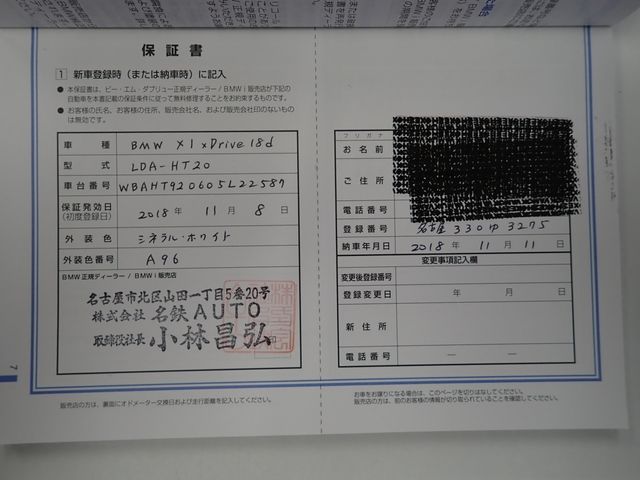 保証書
1 新車登録時（または納車時）に記入
● 本保証書は、ビー・エム・ダブリュー正規ディーラー / BMW i 販売店が下記の
自動車を本書記載の保証条件に従って無料修理することをお約束するものです。
● お客様の氏名、お客様の住所、販売会社名、および販売会社印のないもの
は無効です。
車種 BMW X1 xDrive18d
型式 LDA-HT20
車台番号 WBAHT920605L22587
保証発効日 2018年 11月 8日
(初度登録日)
外装色 ミネラル・ホワイト
外装色番号 A96
BMW正規ディーラー / BMW i 販売店
名古屋市北区山田一丁目5番20号
株式会社 名鉄AUTO
取締役社長 小林昌弘
販売店の方は、裏面にオドメーター交換日および走行距離を記入してください。
フリガナ
お名前
ご住所
電話番号
登録番号 名古屋 330 ゆ 3275
納車年月日 2018年 11月 11日
変更事項記入欄
変更後登録番号
登録変更日 年 月 日
新住所
電話番号 ― ―
お車をお譲りになる場合は、このページを切りはなしてください。
販売店の方は、前のお客様の情報が切り取られていることを確認してください。
7